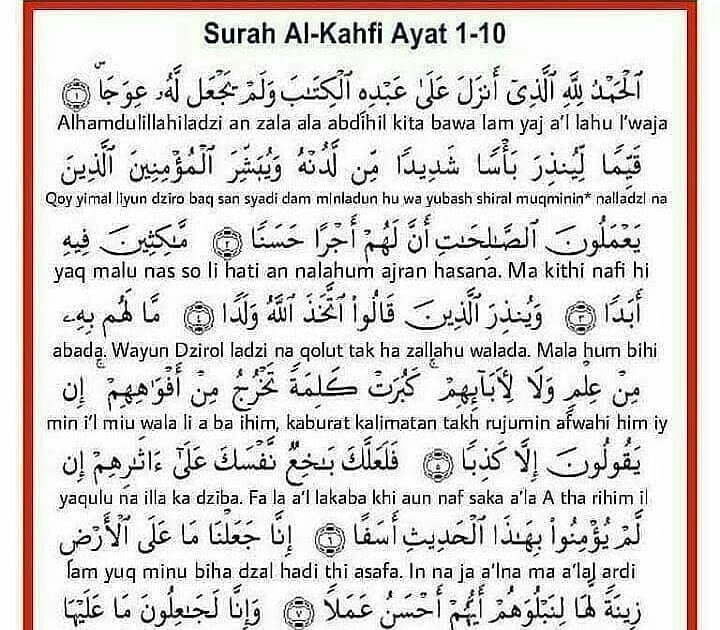 Surah Al-Kahfi Ayat 1-10
الْحَمْدُ لِلَّهِ الَّذِىٓ أَنزَلَ عَلَىٰ عَبْدِهِ الْكِتَـٰبَ وَلَمْ يَجْعَل لَّهُۥ عِوَجَاۜ ١
Alhamdulillahiladzi an zala ala abdihil kita bawa lam yaj a'l lahu I'waja
قَيِّمًا لِّيُنذِرَ بَأْسًا شَدِيدًا مِّن لَّدُنْهُ وَيُبَشِّرَ الْمُؤْمِنِينَ الَّذِينَ
Qoy yimal liyun dziro baq san syadi dam minladun hu wa yubash shiral muqminin* nalladzi na
يَعْمَلُونَ الصَّـٰلِحَـٰتِ أَنَّ لَهُمْ أَجْرًا حَسَنًا ٢ مَّـٰكِثِينَ فِيهِ
yaq malu nas so li hati an nalahum ajran hasana. Ma kithi nafi hi
أَبَدًا ٣ وَيُنذِرَ الَّذِينَ قَالُوا۟ اتَّخَذَ اللَّهُ وَلَدًا ٤ مَّا لَهُم بِهِۦ
abada. Wayun Dzirol ladzi na qolut tak ha zallahu walada. Mala hum bihi
مِنْ عِلْمٍ وَلَا لِـَٔابَآئِهِمْ ۚ كَبُرَتْ كَلِمَةً تَخْرُجُ مِنْ أَفْوَٰهِهِمْ ۚ إِن
min i'l miu wala li a ba ihim, kaburat kalimatan takh rujumin afwahi him iy
يَقُولُونَ إِلَّا كَذِبًا ٥ فَلَعَلَّكَ بَـٰخِعٌ نَّفْسَكَ عَلَىٰٓ ءَاثَـٰرِهِمْ إِن
yaqulu na illa ka dziba. Fa la a'l lakaba khi aun naf saka a'la A tha rihim il
لَّمْ يُؤْمِنُوا۟ بِهَـٰذَا الْحَدِيثِ أَسَفًا ٦ إِنَّا جَعَلْنَا مَا عَلَى الْأَرْضِ
lam yuq minu biha dzal hadi thi asafa. In na ja a'lna ma a'lal ardi
زِينَةً لَّهَا لِنَبْلُوَهُمْ أَيُّهُمْ أَحْسَنُ عَمَلًا ٧ وَإِنَّا لَجَـٰعِلُونَ مَا عَلَيْهَا